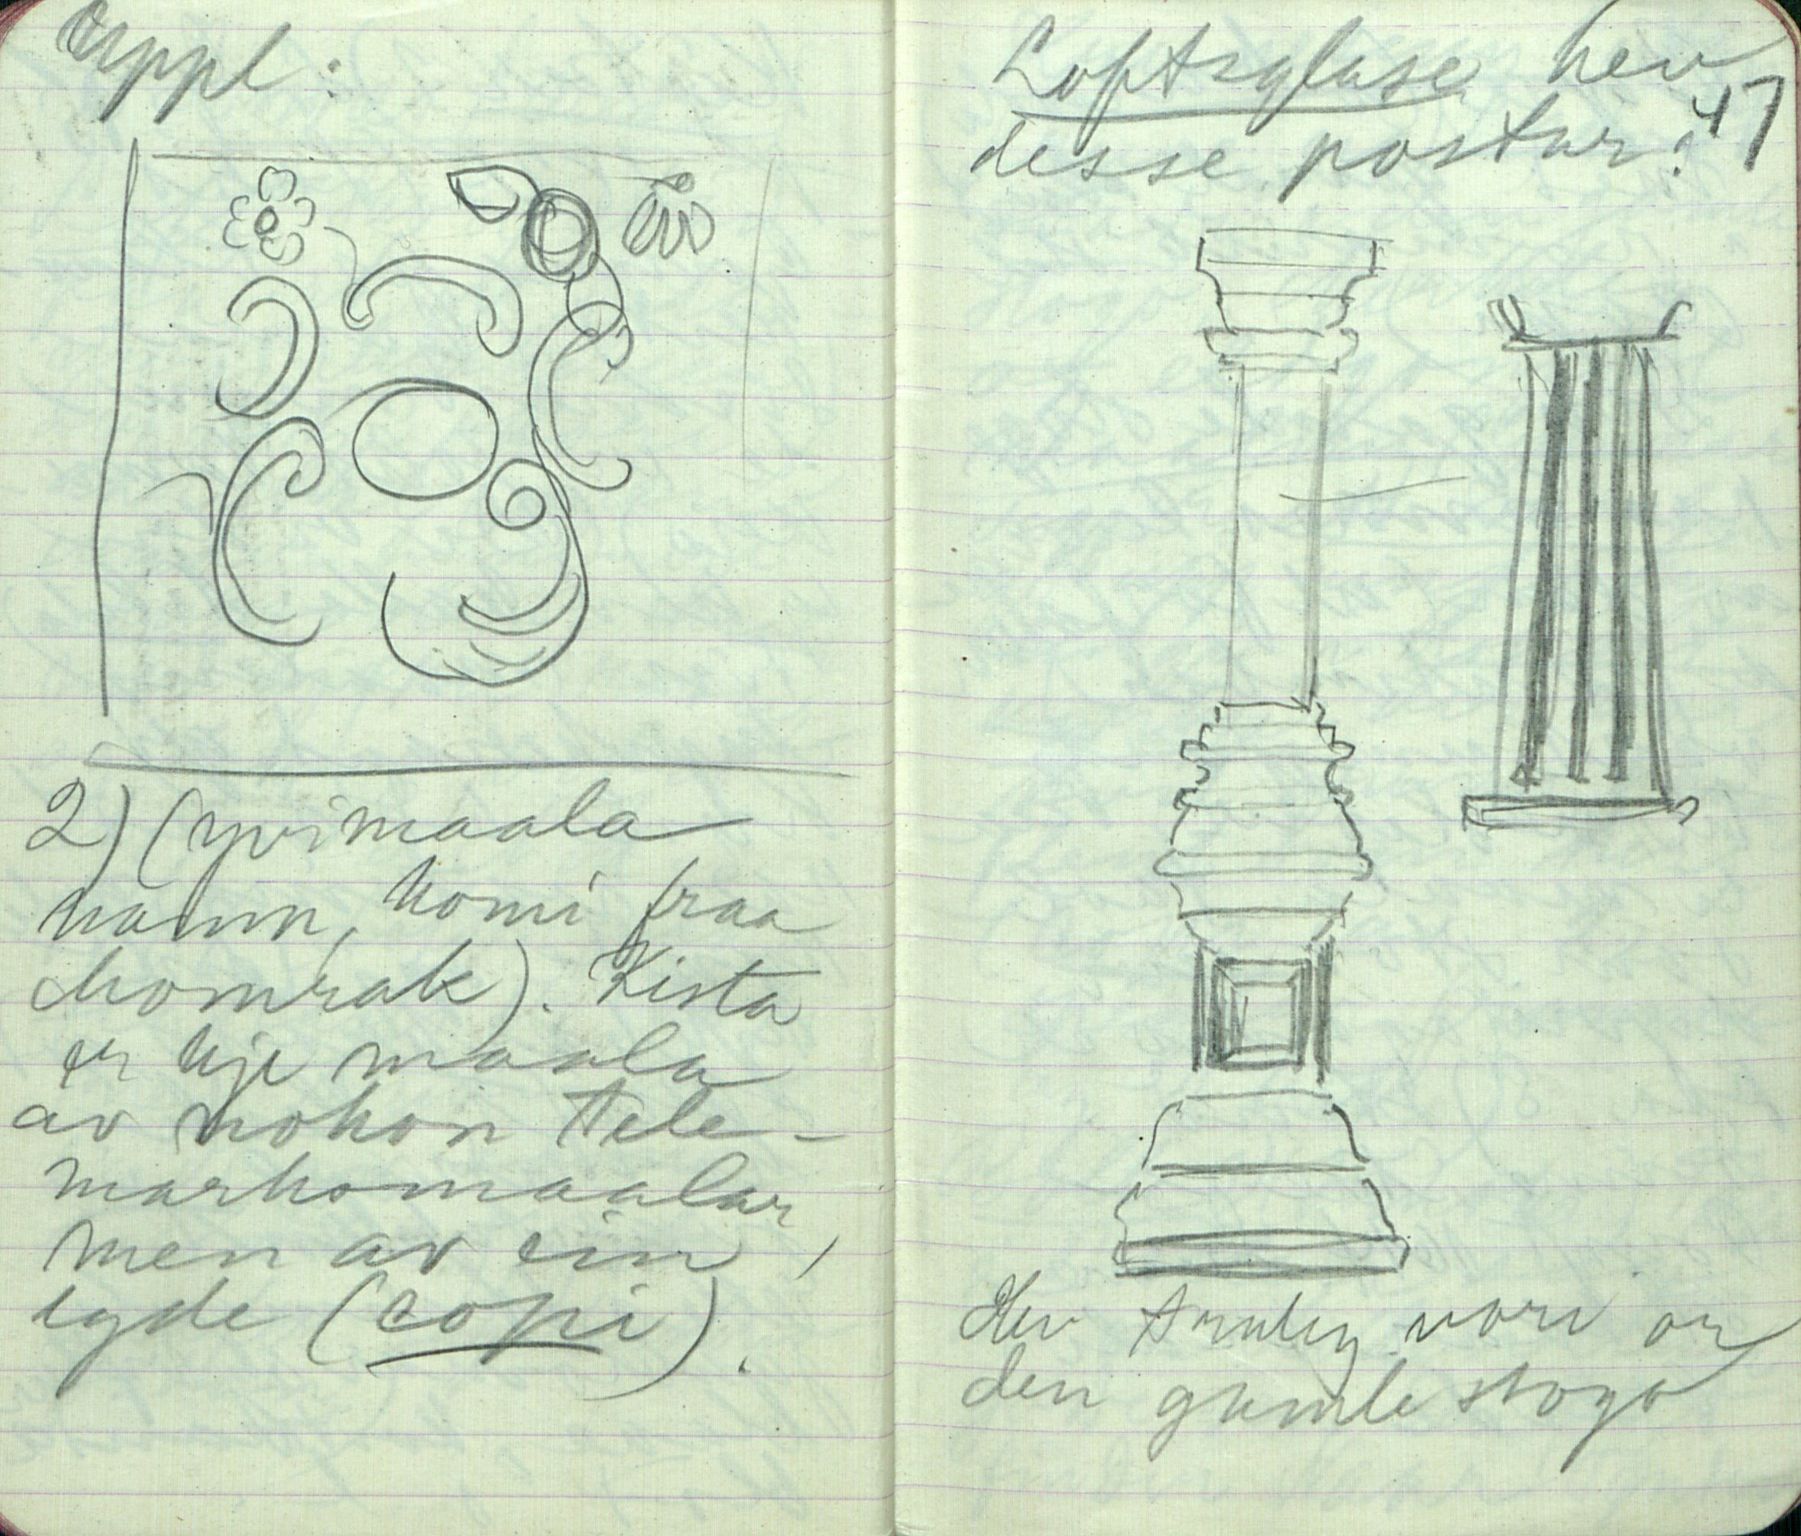 uppl:
2) (yvimaala
namn, komi fraa
Homrak). Kista
er kje maala
av nokon Tele-
markomaalar
men av ein
igde (copi).
Loftsglase hev
47
desse postar:
Hev truleg vori or
den gamle stogo